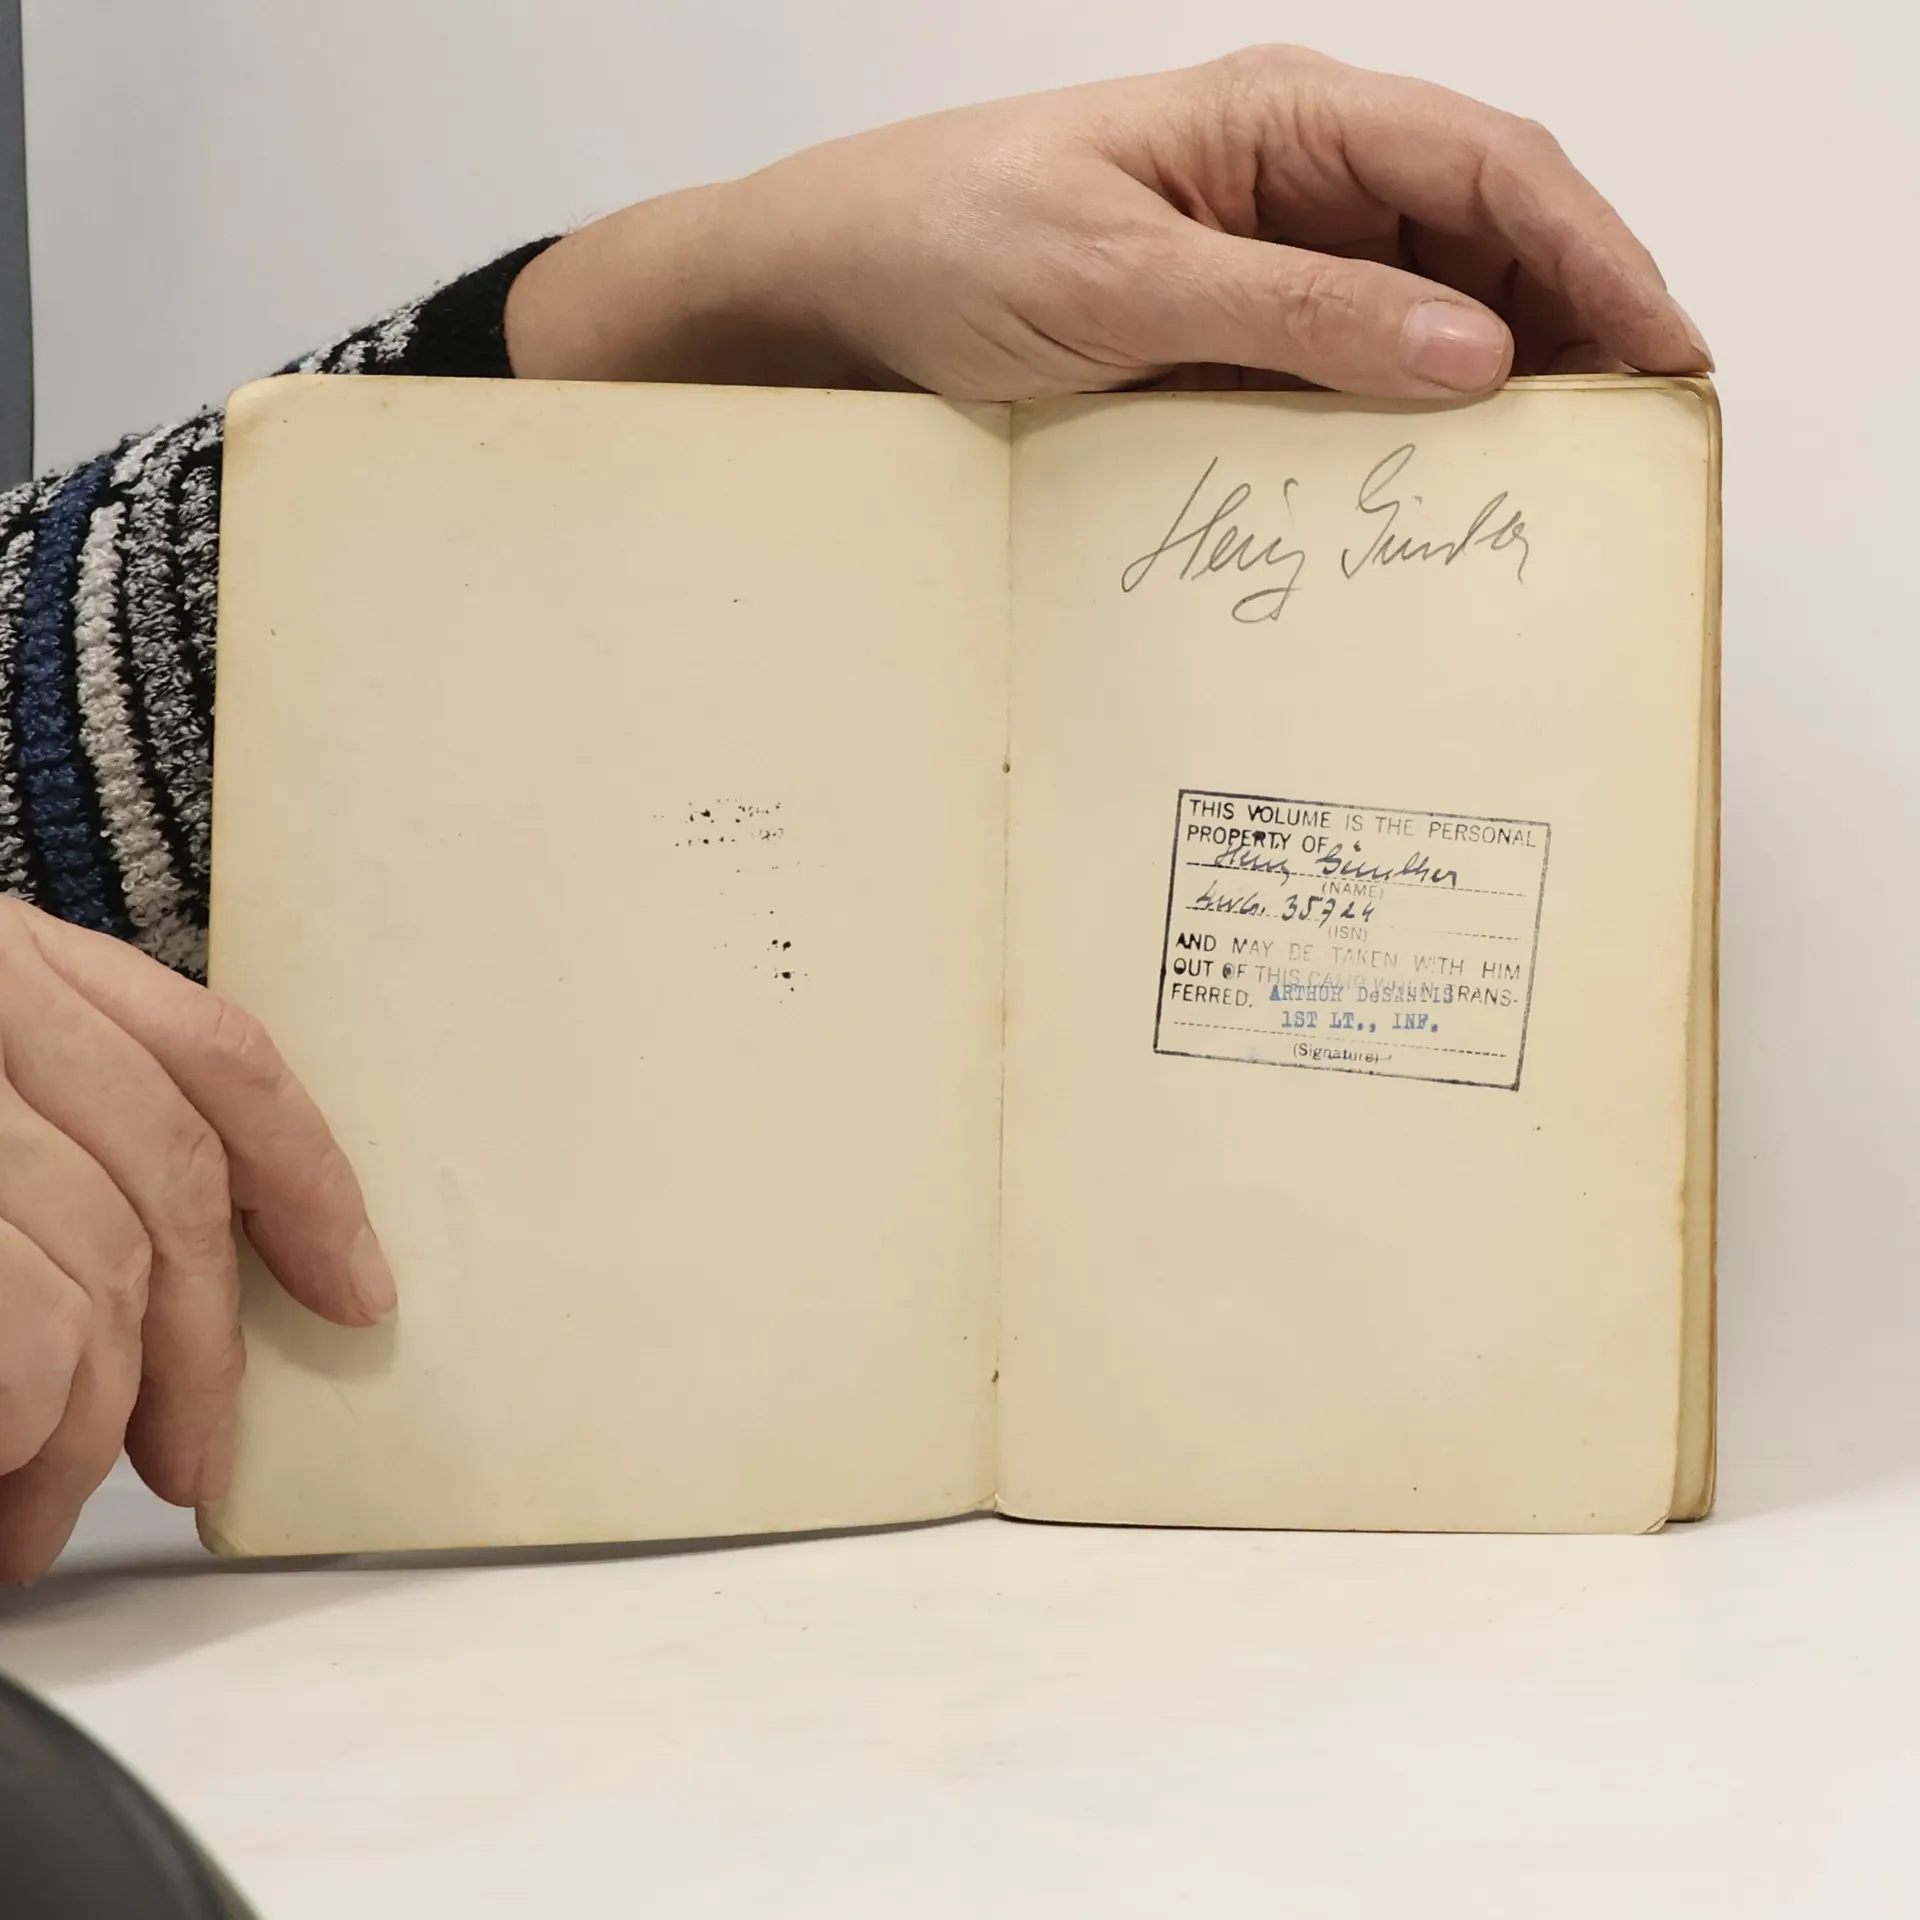 Heinz Günther
THIS VOLUME IS THE PERSONAL
PROPERTY OF
Heinz Günther
(NAME)
35724
(ISN)
AND MAY BE TAKEN WITH HIM
OUT OF THIS CAMP WHEN TRANS-
FERRED. ARTHUR DeSANTIS
1ST LT., INF.
(Signature)